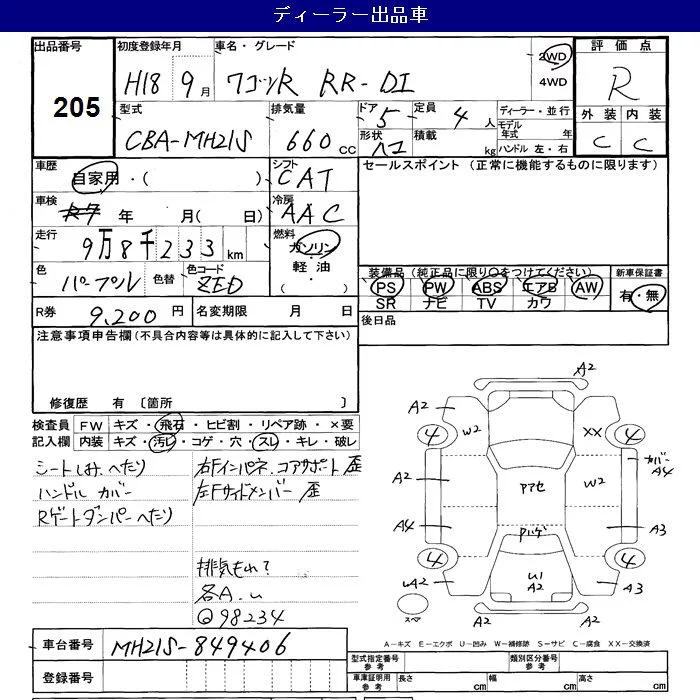 ディーラー出品車
出品番号 初度登録年月 車名・グレード 評価点
205
H18 9月 ワゴンR RR-DI 2WD 4WD R
型式 排気量 ドア 定員 ディーラー・並行 外装 内装
CBA-MH21S 660cc 5 4人 モデル年式 年 C C
形状 積載 kg ハンドル 左・右
車歴 自家用・( ) シフト CAT セールスポイント (正常に機能するものに限ります)
車検 R7 年 月( 日) 冷房 AAC
走行 9万8千233km 燃料 ガソリン・軽油・( )
色 パープル 色替 色コード ZED
装備品(純正品に限り○をつけてください) 新車保証書
PS PW ABS エアB AW 有・無
SR ナビ TV カワ
R券 9,200円 名変期限 月 日 後日品
注意事項申告欄(不具合内容等は具体的に記入して下さい)
修復歴 有 〔箇所 〕
検査員 FW キズ・飛石・ヒビ割・リペア跡・×要
記入欄 内装 キズ・汚レ・コゲ・穴・スレ・キレ・破レ
シートしみ.へたり 右Fインパネ.コアサポート 歪
ハンドル カバー 左Fサイドメンバー 歪
Rゲートダンパーへたり
排気もれ?
各A.U
Q98234
A2
A2 A2
4 W2 XX 4
カバー A4
A2 アマセ W2
A4 Pハゲ A3
4 4
UA2 U1 A2 A3
スペア A2 A2
A-キズ E-エクボ U-凹み W-補修跡 S-サビ C-腐食 XX-交換済
車台番号 MH21S-849406
登録番号
型式指定番号 参考 類別区分番号 参考
車庫証明用 参考 長さ cm 幅 cm 高さ cm